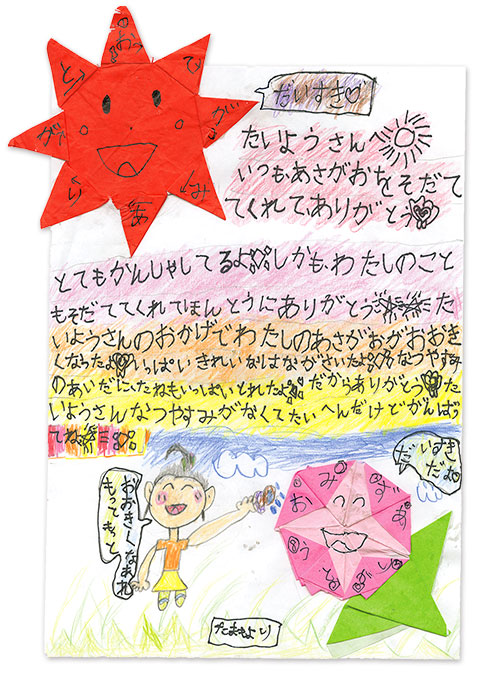 だいすき♡
たいようさんへ
いつもあさがおをそだて
てくれてありがとう
とてもかんしゃしてるよしかも、わたしのこと
もそだててくれてほんとうにありがとうた
いようさんのおかげでわたしのあさがおがおおき
くなったよいっぱいきれいなはながさいたよなつやすみ
のあいだに、たねもいっぱいとれたよだからありがとうた
いようさんなつやすみがなくてたいへんだけどがんばっ
てね
だいすき
だよ
おおきくなあれ
もっともっと
より